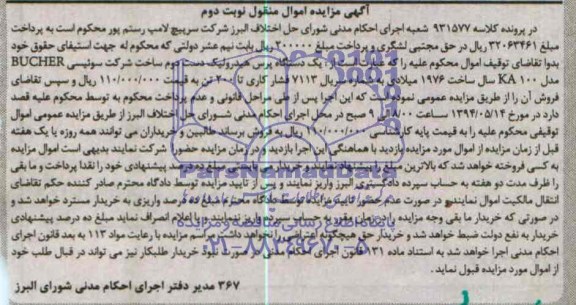 آگهی مزایده اموال منقول نوبت دوم
در پرونده کلاسه ۹۳۱۵۷۷ شعبه اجرای احکام مدنی شورای حل اختلاف البرز شرکت سرپیچ لامپ رستم پور محکوم است به پرداخت
مبلغ ۳۲۰۶۳۴۶۱ ریال در حق مجتبی لشگری و پرداخت مبلغ ۳۰۰۰۰۰ ریال بابت نیم عشر دولتی که محکوم له جهت استیفای حقوق خود
بدوا تقاضای توقیف اموال محکوم علیه را که عبارت است از: یک دستگاه پرس هیدرولیک دست دوم ساخت شرکت سوئیسی BUCHER
مدل KA ۱۰۰ سال ساخت ۱۹۷۶ میلادی شماره سریال ۷۱۱۳ فشار کاری تا ۲۰۰ تن به قیمت ۱۱۰/۰۰۰/۰۰۰ ریال و سپس تقاضای
فروش آن را از طریق مزایده عمومی نموده است که این اجرا پس از طی مراحل قانونی و عدم پرداخت محکوم به توسط محکوم علیه قصد
دارد در مورخ ۱۳۹۴/۰۵/۱۴ ساعت ۸/۰۰ الی ۹ صبح در محل اجرای احکام مدنی شورای حل اختلاف البرز از طریق مزایده عمومی اموال
توقیفی محکوم علیه را به قیمت پایه کارشناسی ۱۱۰/۰۰۰/۰۰۰ ریال به فروش برساند طالبین و خریداران می توانند همه روزه یا یک هفته
قبل از زمان مزایده از اموال مورد مزایده بازدید با هماهنگی این اجرا بازدید و در زمان مزایده حضورا شرکت نمایند بدیهی است اموال مزایده
به کسی فروخته خواهد شد که بالاترین مبلغ را پیشنهاد نمایند و خریدار مکلف است ده درصد پیشنهادی خود را نقدا پرداخت و ما بقی
را ظرف مدت دو هفته به حساب سپرده دادگستری البرز واریز نمایند و پس از تایید مزایده توسط دادگاه محترم صادر کننده حکم تقاضای
انتقال مالکیت اموال نمایند در صورت عدم تایید مزایده توسط دادگاه محترم مبلغ ده درصد واریزی به خریدار مسترد خواهد شد و
در صورتی که خریدار ما بقی وجه مزایده را در زمان مقرر به حساب سپرده واریز ننمایند و یا اعلام انصراف نماید مبلغ ده درصد پیشنهادی
خریدار به نفع دولت ضبط خواهد شد و خریدار حق هیچگونه اعتراضی را نخواهد داشت مراسم مزایده با رعایت مواد ۱۱۳ به بعد قانون اجرای
احکام مدنی اجرا خواهد شد به استناد ماده ۱۳۱ قانون اجرای احکام مدنی در صورت نبود خریدار طلبکار نیز می تواند در قبال طلب خود
از اموال مورد مزایده قبول نماید.
۳۶۷ مدیر دفتر اجرای احکام مدنی شورای البرز
ParsNamadData
پایگاه اطلاع رسانی مناقصه و مزایده
۰۲۱-۸۸۳۴۹۶۷۰-۵